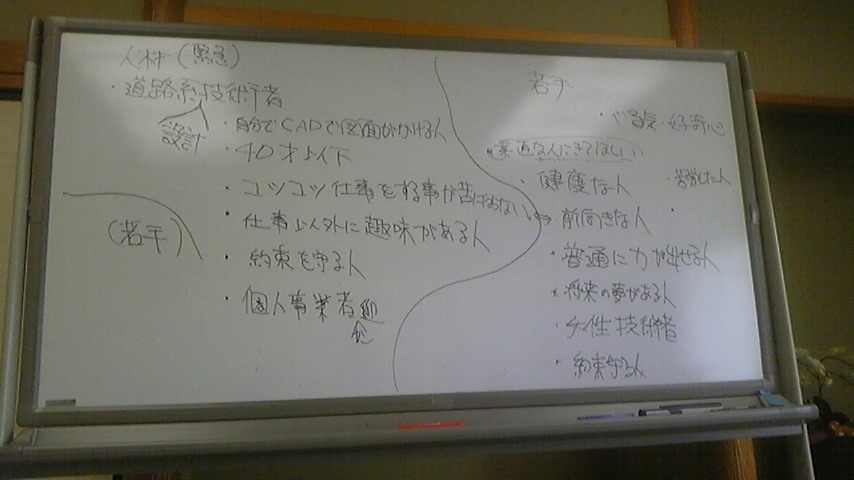 人材(緊急)
・道路系技術者
設計
・自分でCADで図面がかける人
・40才以下
・コツコツ仕事をする事が苦ではない人
・仕事以外に趣味がある人
・約束を守る人
・個人事業者
(若手)
若手
・やる気・好奇心
・素直な人にきてほしい
・健康な人
・前向きな人
・普通に力が出せる人
・将来の夢がある人
・女性技術者
・約束守る人